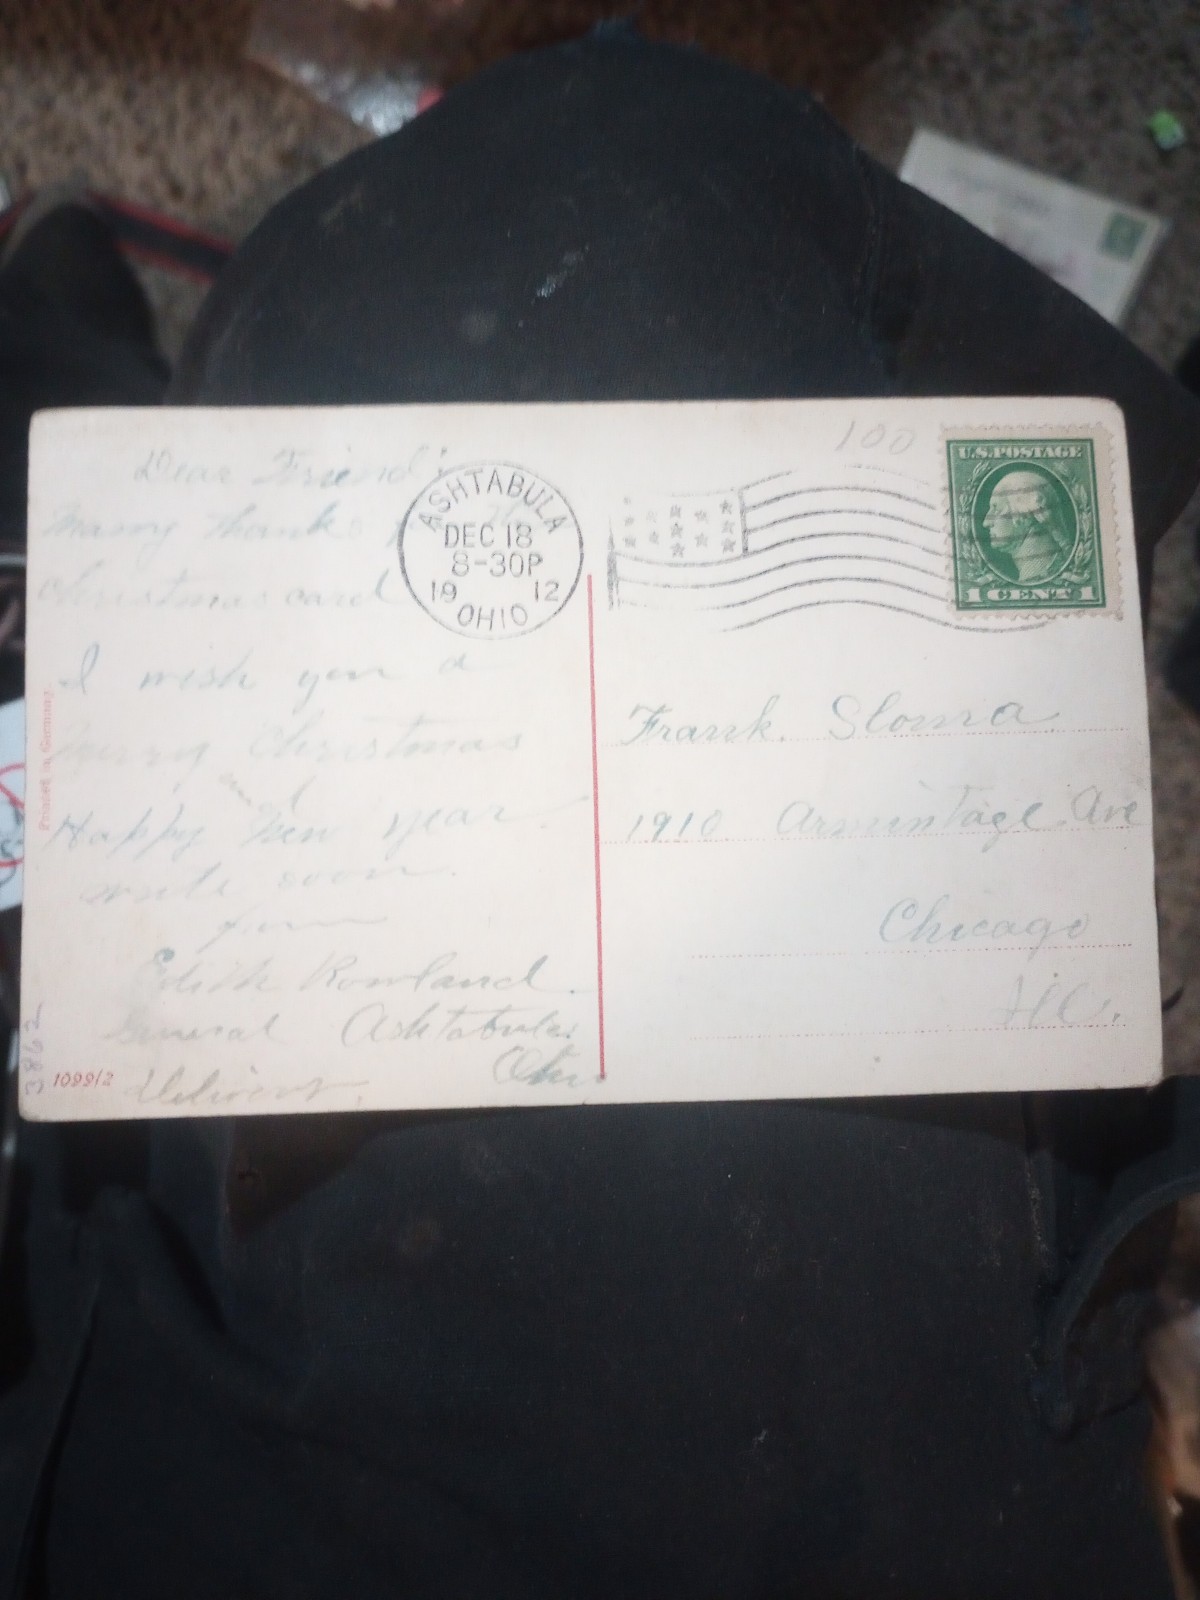 Dear Friend:
Many thanks for the
Christmas card
I wish you a
Merry Christmas
and
Happy New year.
write soon.
from
Edith Rowland.
General Ashtabula.
Ohio.
Delivery.
Printed in Germany.
3862
1099/2
ASHTABULA
DEC 18
8-30P
19 12
OHIO
100
U.S. POSTAGE
1 CENT 1
Frank. Sloma
1910 Armintage Ave
Chicago